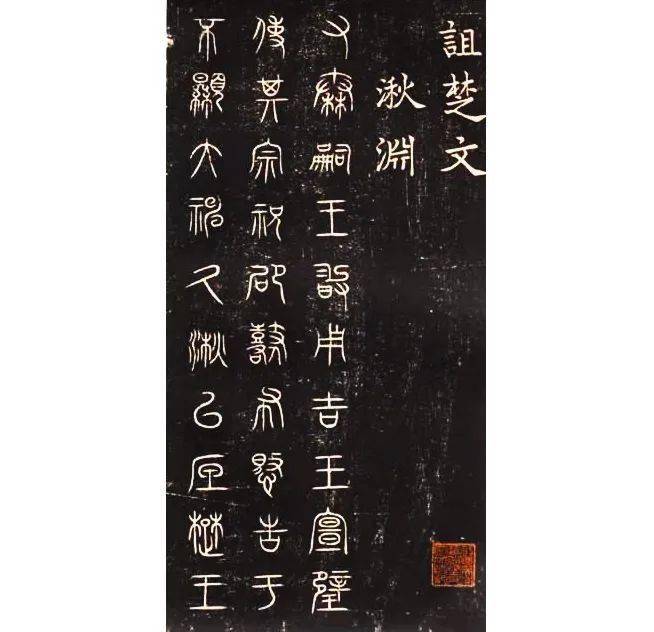 詛楚文
湫淵
又秦嗣王敢用吉玉宣璧
使其宗祝邵鼛布憖告于
不顯大神久湫以底楚王